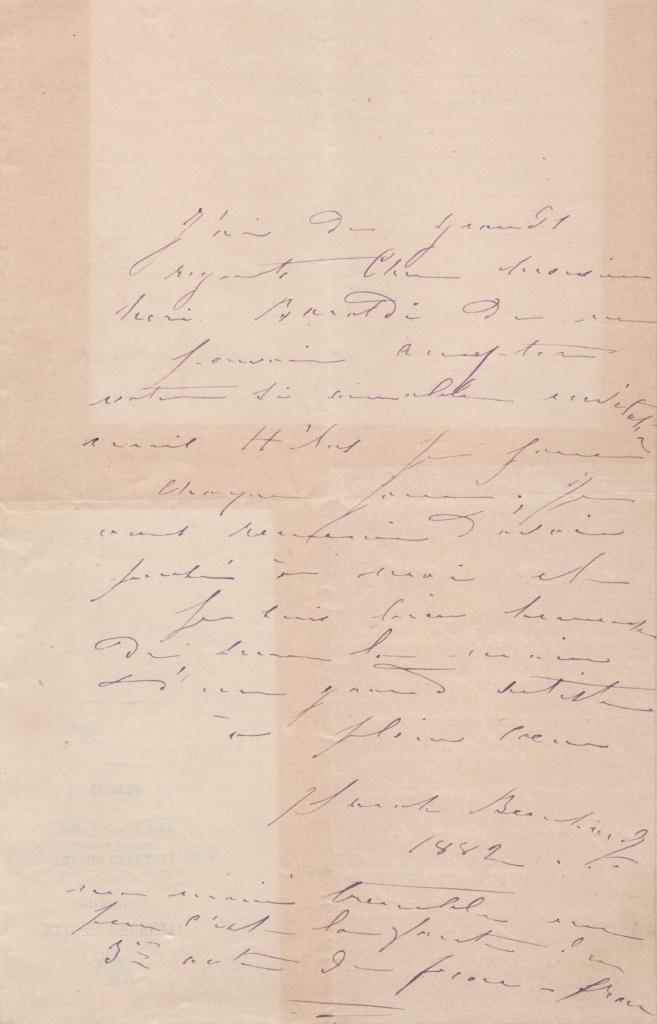 J'ai de grands
regrets Cher Monsieur
de ne
pouvoir accepter
votre si aimable invitation
mais Hélas je joue
chaque jour. je
vous remercie d'avoir
pensé à moi et
je suis bien heureuse
de serrer la main
d'un grand artiste
à plein cœur
Sarah Bernhardt
1882
ma main tremble un
peu c'est la faute du
3me acte de frou-frou